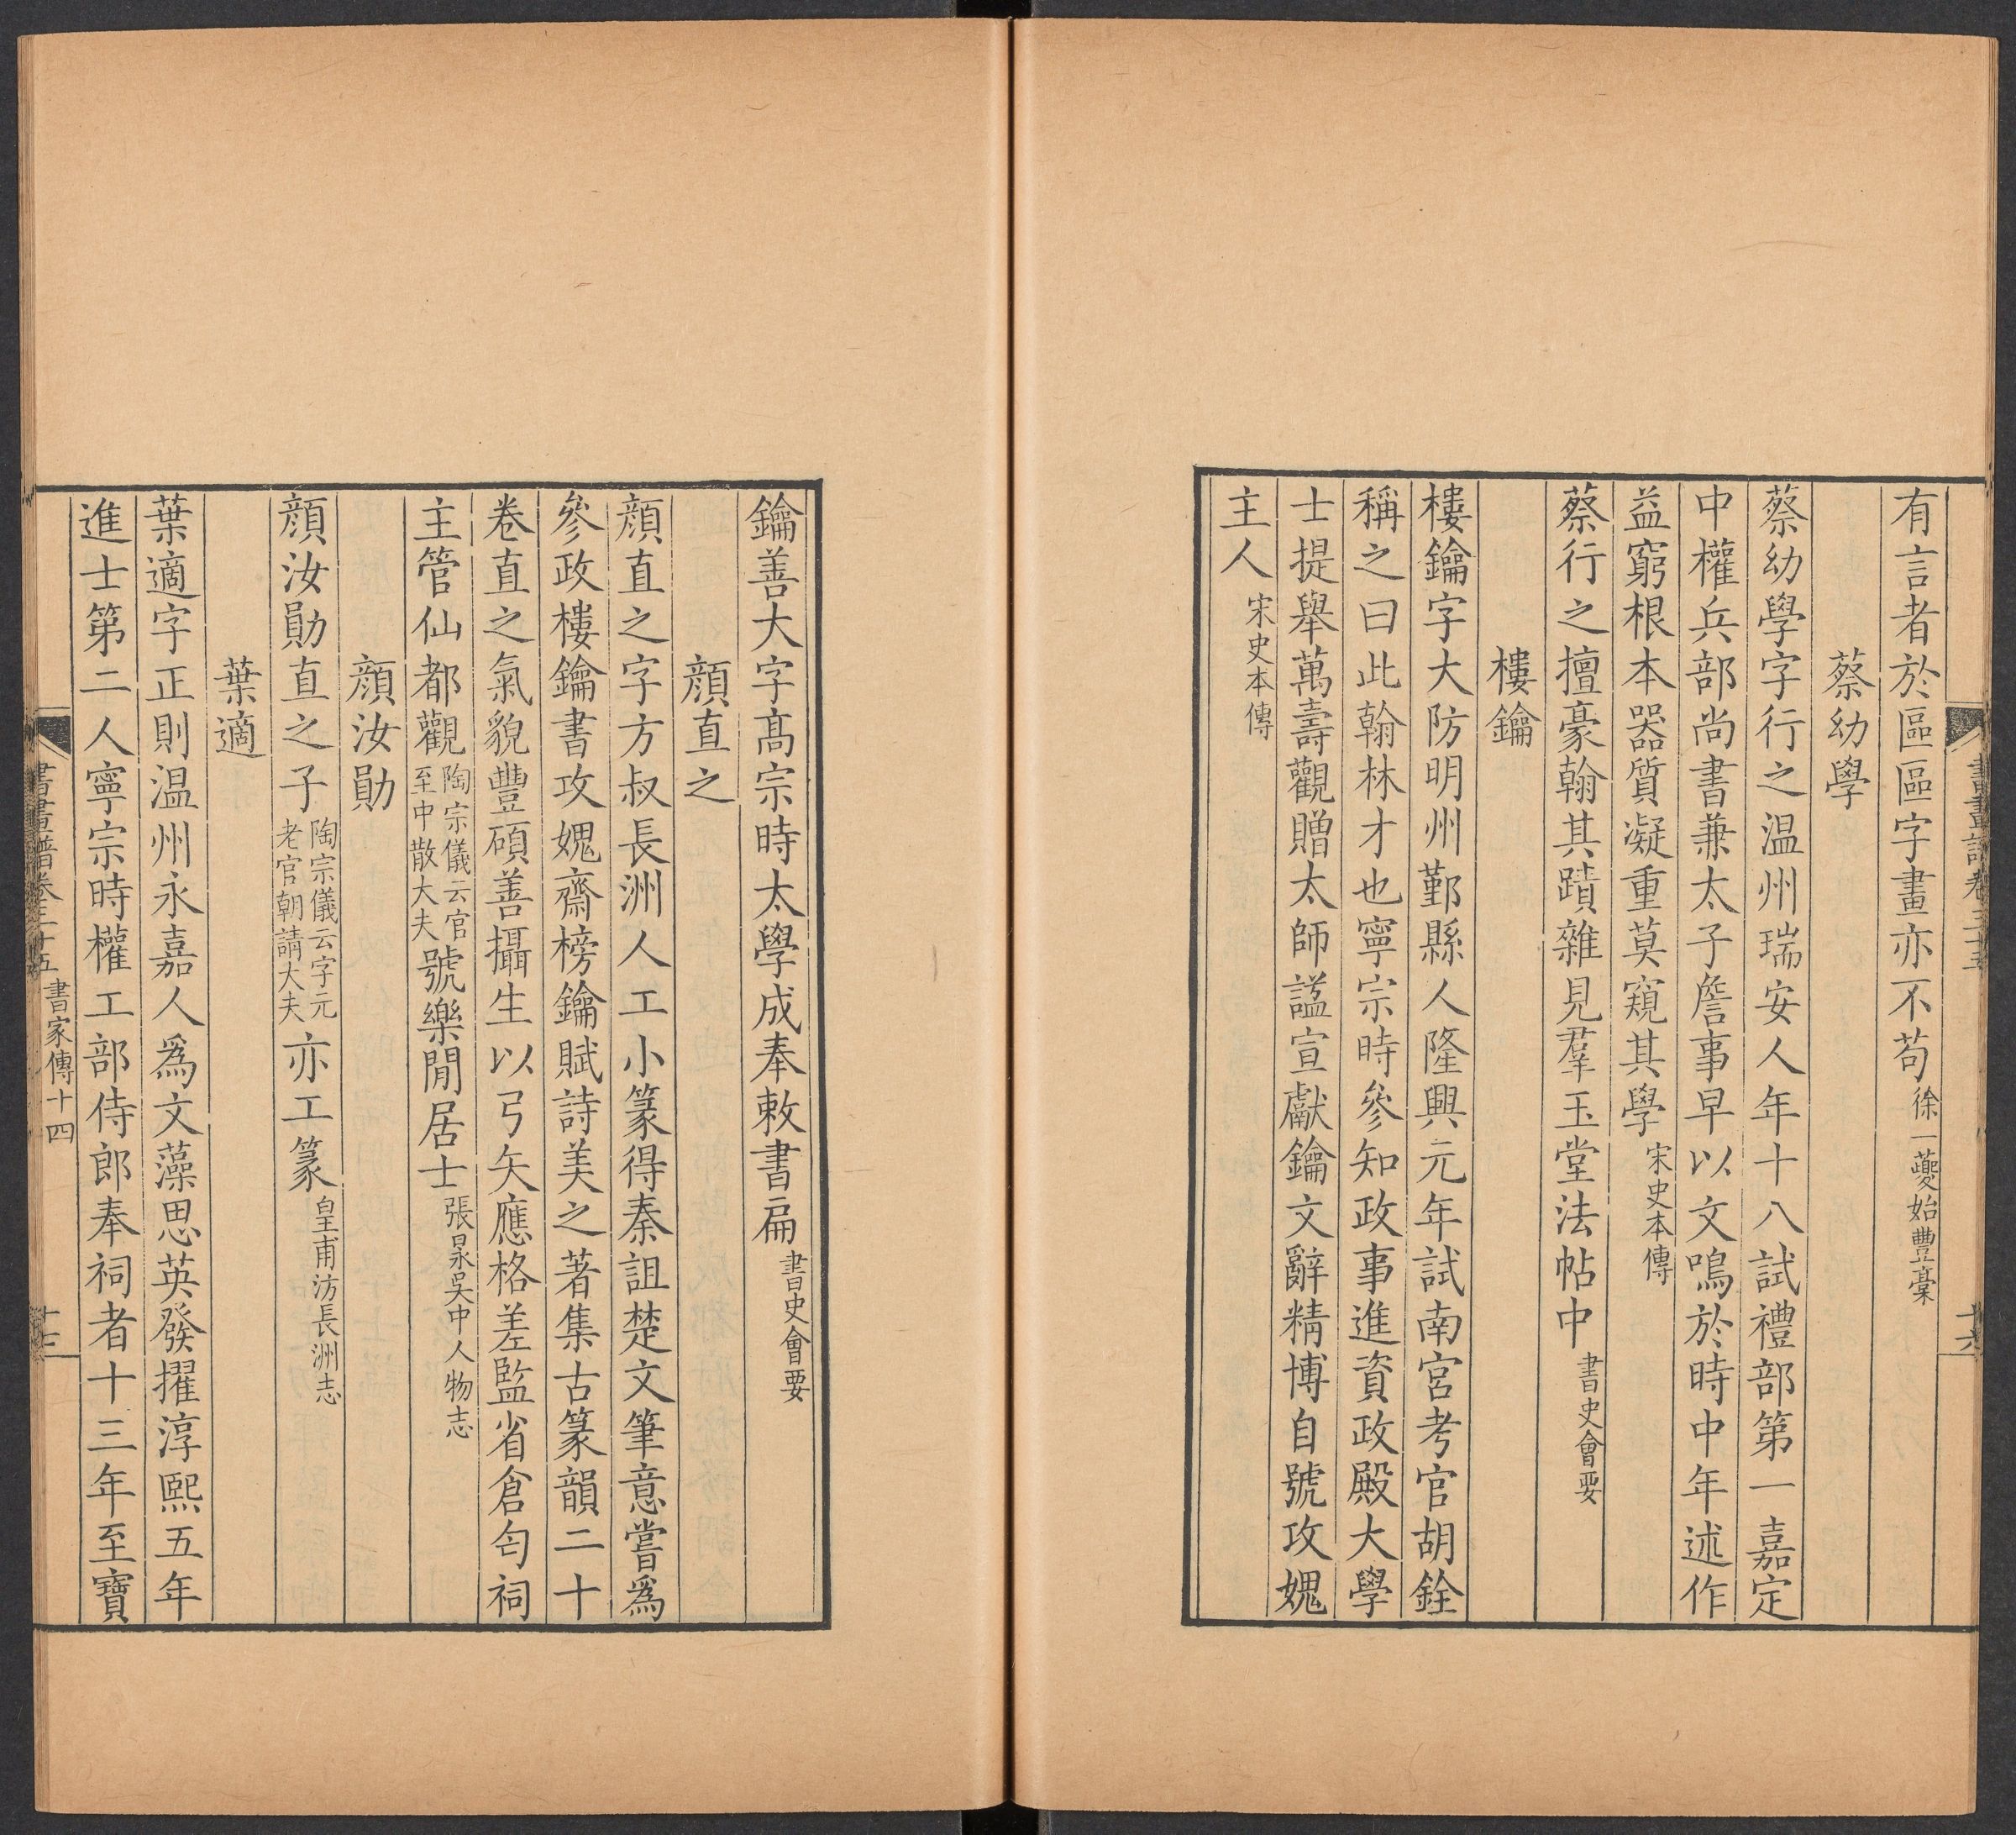 有言者於區區字畫亦不苟徐一夔始豐稾
蔡幼學
蔡幼學字行之温州瑞安人年十八試禮部第一嘉定
中權兵部尚書兼太子詹事早以文鳴於時中年述作
益窮根本器質凝重莫窺其學宋史本傳
蔡行之擅豪翰其蹟雜見羣玉堂法帖中書史會要
樓鑰
樓鑰字大防明州鄞縣人隆興元年試南宮考官胡銓
稱之曰此翰林才也寧宗時參知政事進資政殿大學
士提舉萬壽觀贈太師諡宣獻鑰文辭精博自號攻媿
主人宋史本傳
鑰善大字髙宗時太學成奉敕書扁書史會要
顔直之
顔直之字方叔長洲人工小篆得秦詛楚文筆意嘗爲
參政樓鑰書攻媿齋榜鑰賦詩美之著集古篆韻二十
卷直之氣貌豐碩善攝生以弓矢應格差監省倉匄祠
主管仙都觀陶宗儀云官至中散大夫號樂閒居士張㫤吳中人物志
顔汝勛
顔汝勛直之子陶宗儀云字元老官朝請大夫亦工篆皇甫汸長洲志
葉適
葉適字正則温州永嘉人爲文藻思英發擢淳熙五年
進士第二人寧宗時權工部侍郎奉祠者十三年至寶
書畫譜卷三十五 書家傳十四